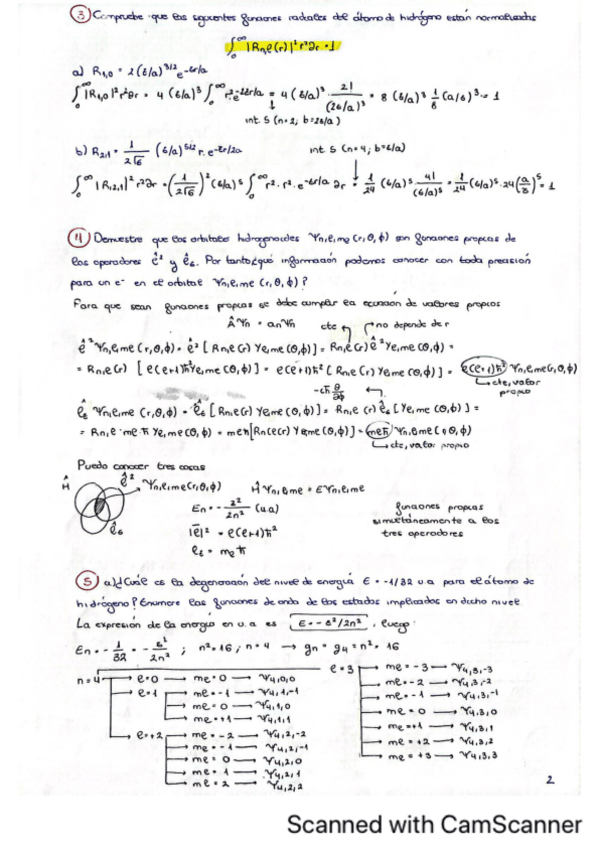 ③ Compruebe que las siguientes funciones radiales del átomo de hidrógeno están normalizadas
∫₀^∞ |Rn,e(r)|² r² dr = 1
a) R1,0 = 2 (z/a)^3/2 e^-zr/a
∫₀^∞ |R1,0|² r² dr = 4 (z/a)³ ∫₀^∞ r² e^-2zr/a = 4 (z/a)³ · 2!/(2z/a)³ = 8 (z/a)³ 1/8 (a/z)³ = 1
int. 5 (n=2; b=2z/a)
b) R2,1 = 1/2√6 (z/a)^5/2 r · e^-zr/2a
int. 5 (n=4; b=z/a)
∫₀^∞ |R2,1|² r² dr = (1/2√6)² (z/a)⁵ ∫₀^∞ r² · r² · e^-zr/a dr = 1/24 (z/a)⁵ · 4!/(z/a)⁵ = 1/24 (z/a)⁵ · 24 (a/z)⁵ = 1
④ Demuestre que los orbitales hidrogenoides Ψn,e,me (r,θ,ϕ) son funciones propias de
los operadores ê² y êz. Por tanto ¿qué información podemos conocer con toda precisión
para un e⁻ en el orbital Ψn,e,me (r,θ,ϕ)?
Para que sean funciones propias se debe cumplir la ecuación de valores propios
ÂΨn = anΨn
cte no depende de r
ê² Ψn,e,me (r,θ,ϕ) = ê² [Rn,e(r) Ye,me (θ,ϕ)] = Rn,e(r) ê² Ye,me (θ,ϕ) =
= Rn,e(r) [e(e+1)ħ² Ye,me (θ,ϕ)] = e(e+1)ħ² [Rn,e(r) Ye,me (θ,ϕ)] = e(e+1)ħ² Ψn,e,me (r,θ,ϕ)
cte, valor propio
-iħ ∂/∂ϕ
êz Ψn,e,me (r,θ,ϕ) = êz [Rn,e(r) Ye,me (θ,ϕ)] = Rn,e (r) êz [Ye,me (θ,ϕ)] =
= Rn,e · me ħ Ye,me (θ,ϕ) = meħ [Rn,e(r) Ye,me (θ,ϕ)] = meħ Ψn,e,me (r,θ,ϕ)
cte, valor propio
Puedo conocer tres cosas
Ĥ ê² Ψn,e,me (r,θ,ϕ) Ĥ Ψn,e,me = E Ψn,e,me
En = - z²/2n² (u.a) funciones propias
|e|² = e(e+1)ħ² simultáneamente a los
êz ez = me ħ tres operadores
⑤ a) ¿Cuál es la degeneración del nivel de energía E = -1/32 u.a para el átomo de
hidrógeno? Enumere las funciones de onda de los estados implicados en dicho nivel
La expresión de la energía en u.a es E = - z²/2n², luego:
En = - 1/32 = - z²/2n² ; n² = 16 ; n = 4 → gn = g4 = n² = 16
n = 4 → e = 0 → me = 0 → Ψ4,0,0
e = 1 → me = -1 → Ψ4,1,-1
me = 0 → Ψ4,1,0
me = +1 → Ψ4,1,1
e = +2 → me = -2 → Ψ4,2,-2
me = -1 → Ψ4,2,-1
me = 0 → Ψ4,2,0
me = 1 → Ψ4,2,1
me = 2 → Ψ4,2,2
e = 3 → me = -3 → Ψ4,3,-3
me = -2 → Ψ4,3,-2
me = -1 → Ψ4,3,-1
me = 0 → Ψ4,3,0
me = +1 → Ψ4,3,1
me = +2 → Ψ4,3,2
me = +3 → Ψ4,3,3
2
Scanned with CamScanner